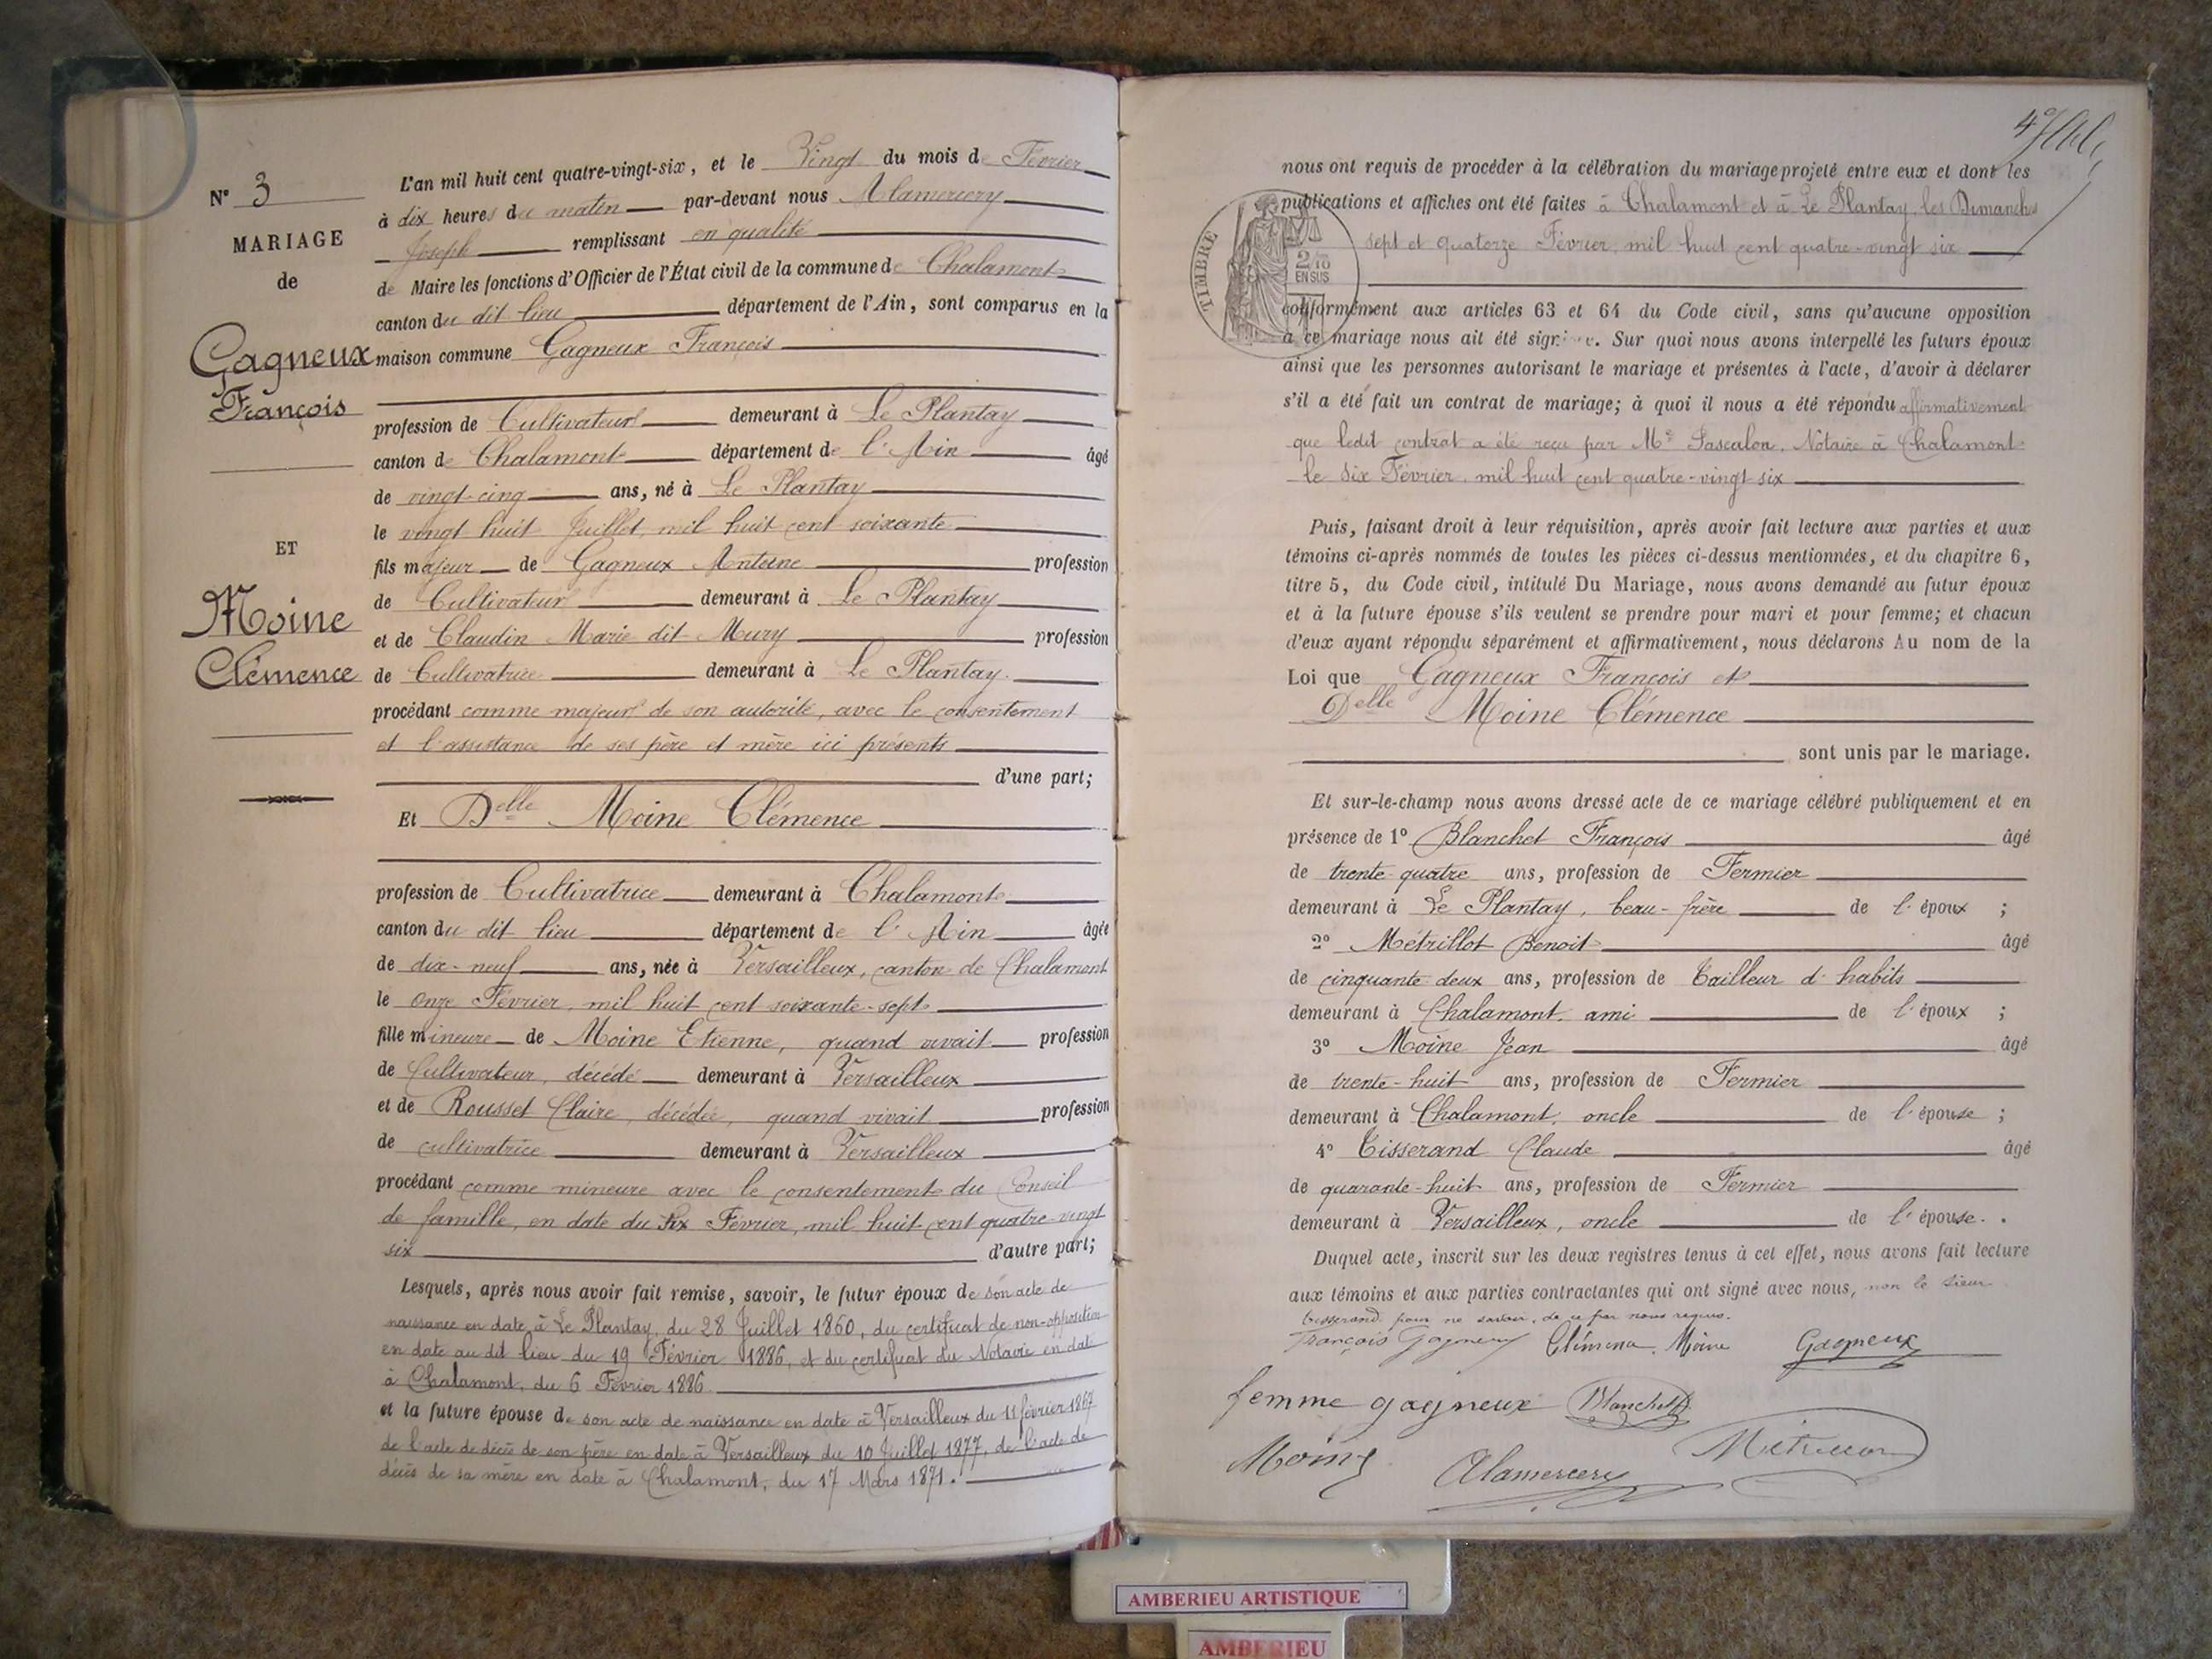 N° 3
MARIAGE
de
Gagneux
François
ET
Moine
Clémence
L'an mil huit cent quatre-vingt-six, et le Vingt du mois de Février
à dix heures du matin par-devant nous Alamercery
Joseph remplissant en qualité
de Maire les fonctions d'Officier de l'État civil de la commune de Chalamont
canton du dit lieu département de l'Ain, sont comparus en la
maison commune Gagneux François
profession de Cultivateur demeurant à Le Plantay
canton de Chalamont département de l'Ain âgé
de vingt-cinq ans, né à Le Plantay
le vingt huit Juillet, mil huit cent soixante
fils majeur de Gagneux Antoine profession
de Cultivateur demeurant à Le Plantay
et de Claudin Marie dit Mury profession
de Cultivatrice demeurant à Le Plantay
procédant comme majeur de son autorité, avec le consentement
et l'assistance de ses père et mère ici présents
d'une part;
Et Delle Moine Clémence
profession de Cultivatrice demeurant à Chalamont
canton du dit lieu département de l'Ain âgée
de dix-neuf ans, née à Versailleux, canton de Chalamont
le onze Février, mil huit cent soixante-sept
fille mineure de Moine Etienne, quand vivait profession
de Cultivateur, décédé demeurant à Versailleux
et de Rousset Claire, décédée, quand vivait profession
de cultivatrice demeurant à Versailleux
procédant comme mineure avec le consentement du Conseil
de famille, en date du six Février, mil huit cent quatre-vingt
six d'autre part;
Lesquels, après nous avoir fait remise, savoir, le futur époux de son acte de
naissance en date à Le Plantay, du 28 Juillet 1860, du certificat de non-opposition
en date au dit lieu du 19 Février 1886, et du certificat du Notaire en date
à Chalamont, du 6 Février 1886
et la future épouse de son acte de naissance en date à Versailleux du 11 février 1867
de l'acte de décès de son père en date à Versailleux du 10 Juillet 1877, de l'acte de
décès de sa mère en date à Chalamont, du 17 Mars 1871.
nous ont requis de procéder à la célébration du mariage projeté entre eux et dont les
publications et affiches ont été faites à Chalamont et à Le Plantay, les Dimanches
sept et quatorze Février, mil huit cent quatre-vingt six
TIMBRE
2/10
EN SUS
conformément aux articles 63 et 64 du Code civil, sans qu'aucune opposition
à ce mariage nous ait été signifiée. Sur quoi nous avons interpellé les futurs époux
ainsi que les personnes autorisant le mariage et présentes à l'acte, d'avoir à déclarer
s'il a été fait un contrat de mariage; à quoi il nous a été répondu affirmativement
que ledit contrat a été reçu par Me Pascalon, Notaire à Chalamont
le six Février, mil huit cent quatre-vingt six
Puis, faisant droit à leur réquisition, après avoir fait lecture aux parties et aux
témoins ci-après nommés de toutes les pièces ci-dessus mentionnées, et du chapitre 6,
titre 5, du Code civil, intitulé Du Mariage, nous avons demandé au futur époux
et à la future épouse s'ils veulent se prendre pour mari et pour femme; et chacun
d'eux ayant répondu séparément et affirmativement, nous déclarons Au nom de la
Loi que Gagneux François et
Delle Moine Clémence
sont unis par le mariage.
Et sur-le-champ nous avons dressé acte de ce mariage célébré publiquement et en
présence de 1° Blanchet François âgé
de trente quatre ans, profession de Fermier
demeurant à Le Plantay, beau-frère de l'époux ;
2° Métrillot Benoit âgé
de cinquante deux ans, profession de Tailleur d'habits
demeurant à Chalamont, ami de l'époux ;
3° Moine Jean âgé
de trente-huit ans, profession de Fermier
demeurant à Chalamont, oncle de l'épouse ;
4° Tisserand Claude âgé
de quarante-huit ans, profession de Fermier
demeurant à Versailleux, oncle de l'épouse.
Duquel acte, inscrit sur les deux registres tenus à cet effet, nous avons fait lecture
aux témoins et aux parties contractantes qui ont signé avec nous, non le sieur
tisserand pour ne savoir, de ce par nous requis.
François Gagneux Clémence Moine Gagneux
femme gagneux Blanchet
Moine Alamercery
AMBERIEU ARTISTIQUE
AMBERIEU